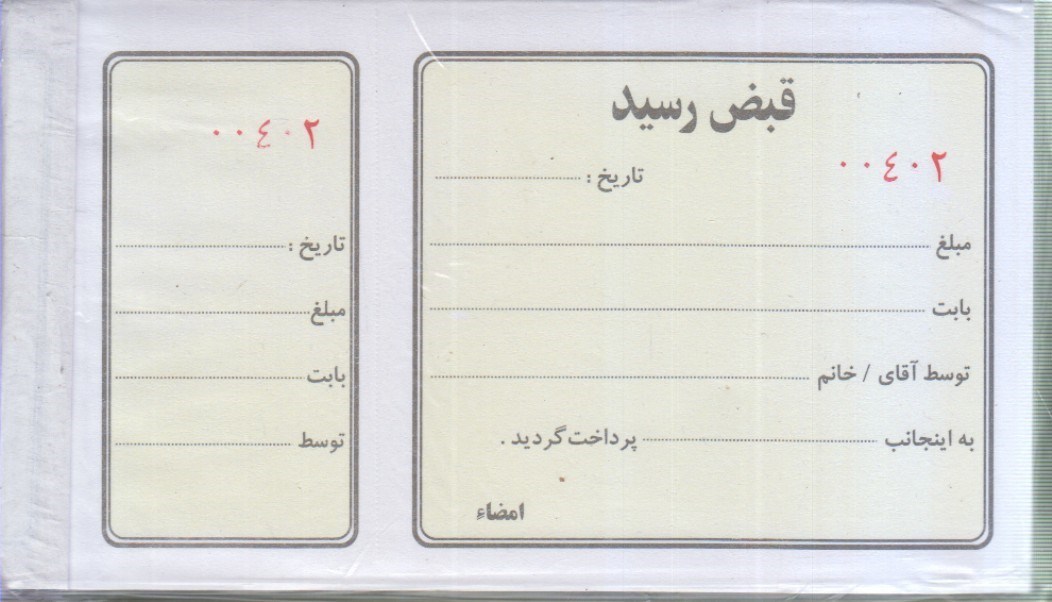 قبض رسید
٠٠٤٠٢
تاریخ : ........................
مبلغ ........................
بابت ........................
توسط آقای / خانم ........................
به اینجانب ........................ پرداخت گردید .
امضاء
٠٠٤٠٢
تاریخ : ........................
مبلغ ........................
بابت ........................
توسط ........................